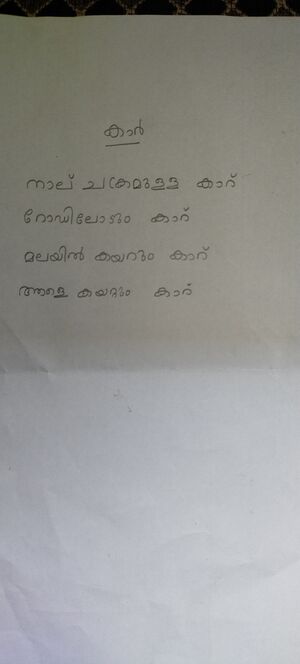 കാർ
നാല് ചക്രമുള്ള കാറ്
റോഡിലോടും കാറ്
മലയിൽ കയറും കാറ്
ആളെ കയറ്റും കാറ്